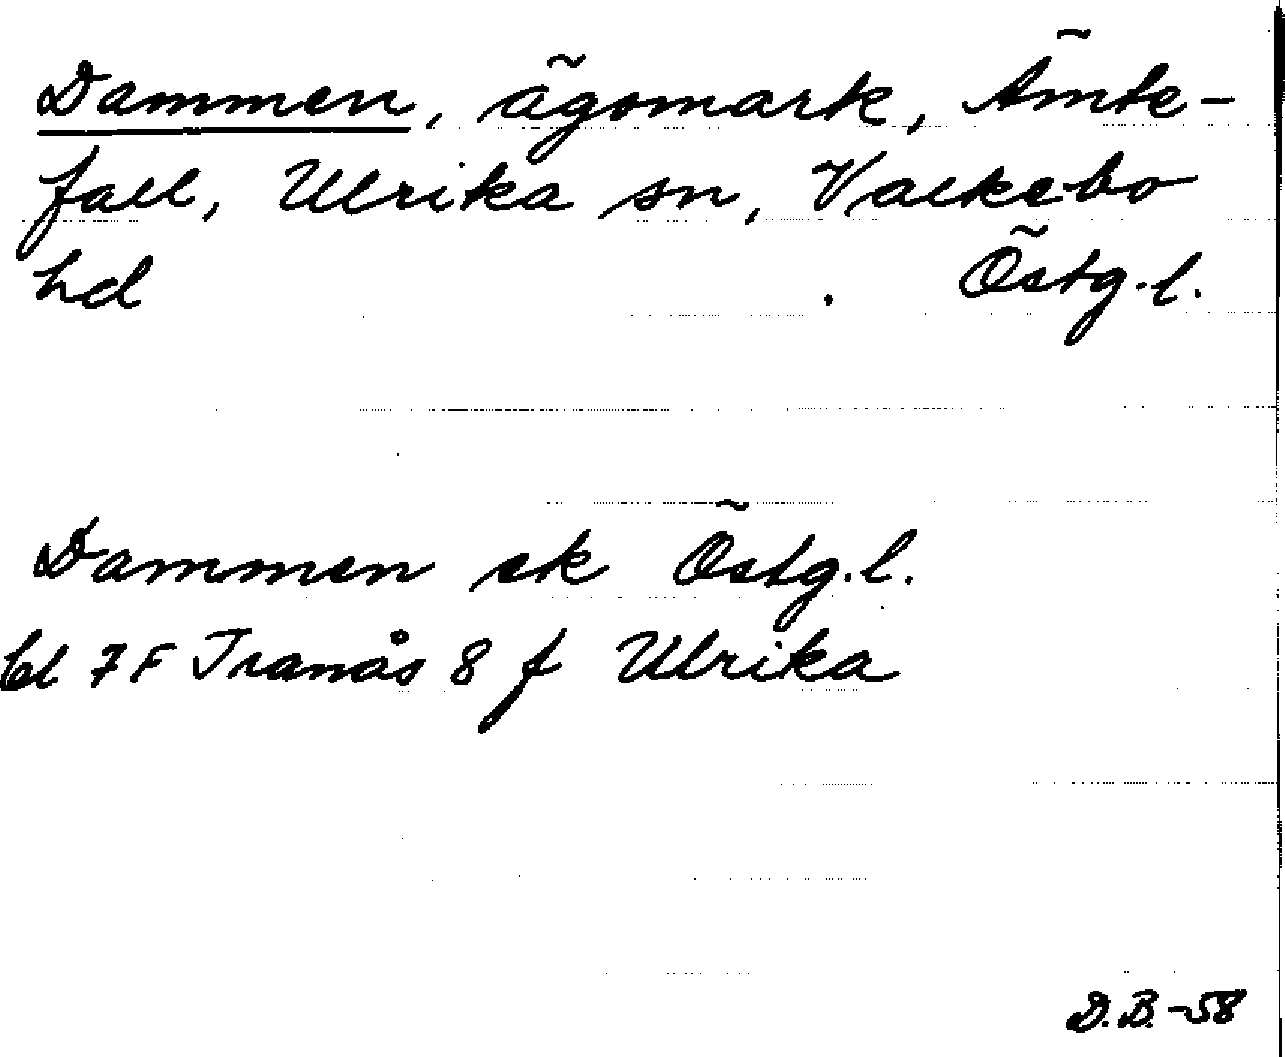 Dammen, ägomark, Ämte-
fall, Ulrika sn, Valkebo
hd Östg.l.
Dammen ek Östg.l.
bl 7 F Tranås 8 f Ulrika
D.B.-58